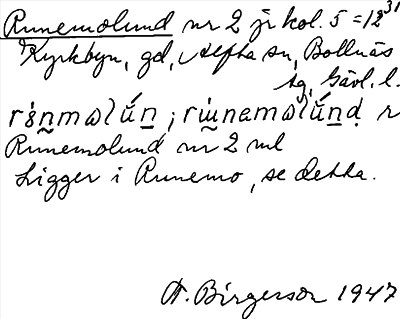 Runemolund nr 2 jr kol. 5 = 12³¹
Kyrkbyn, gd, Alfta sn, Bollnäs
tg, Gävl. l.
Runemolund nr 2 ml
Ligger i Runemo, se detta.
A. Birgerson 1947